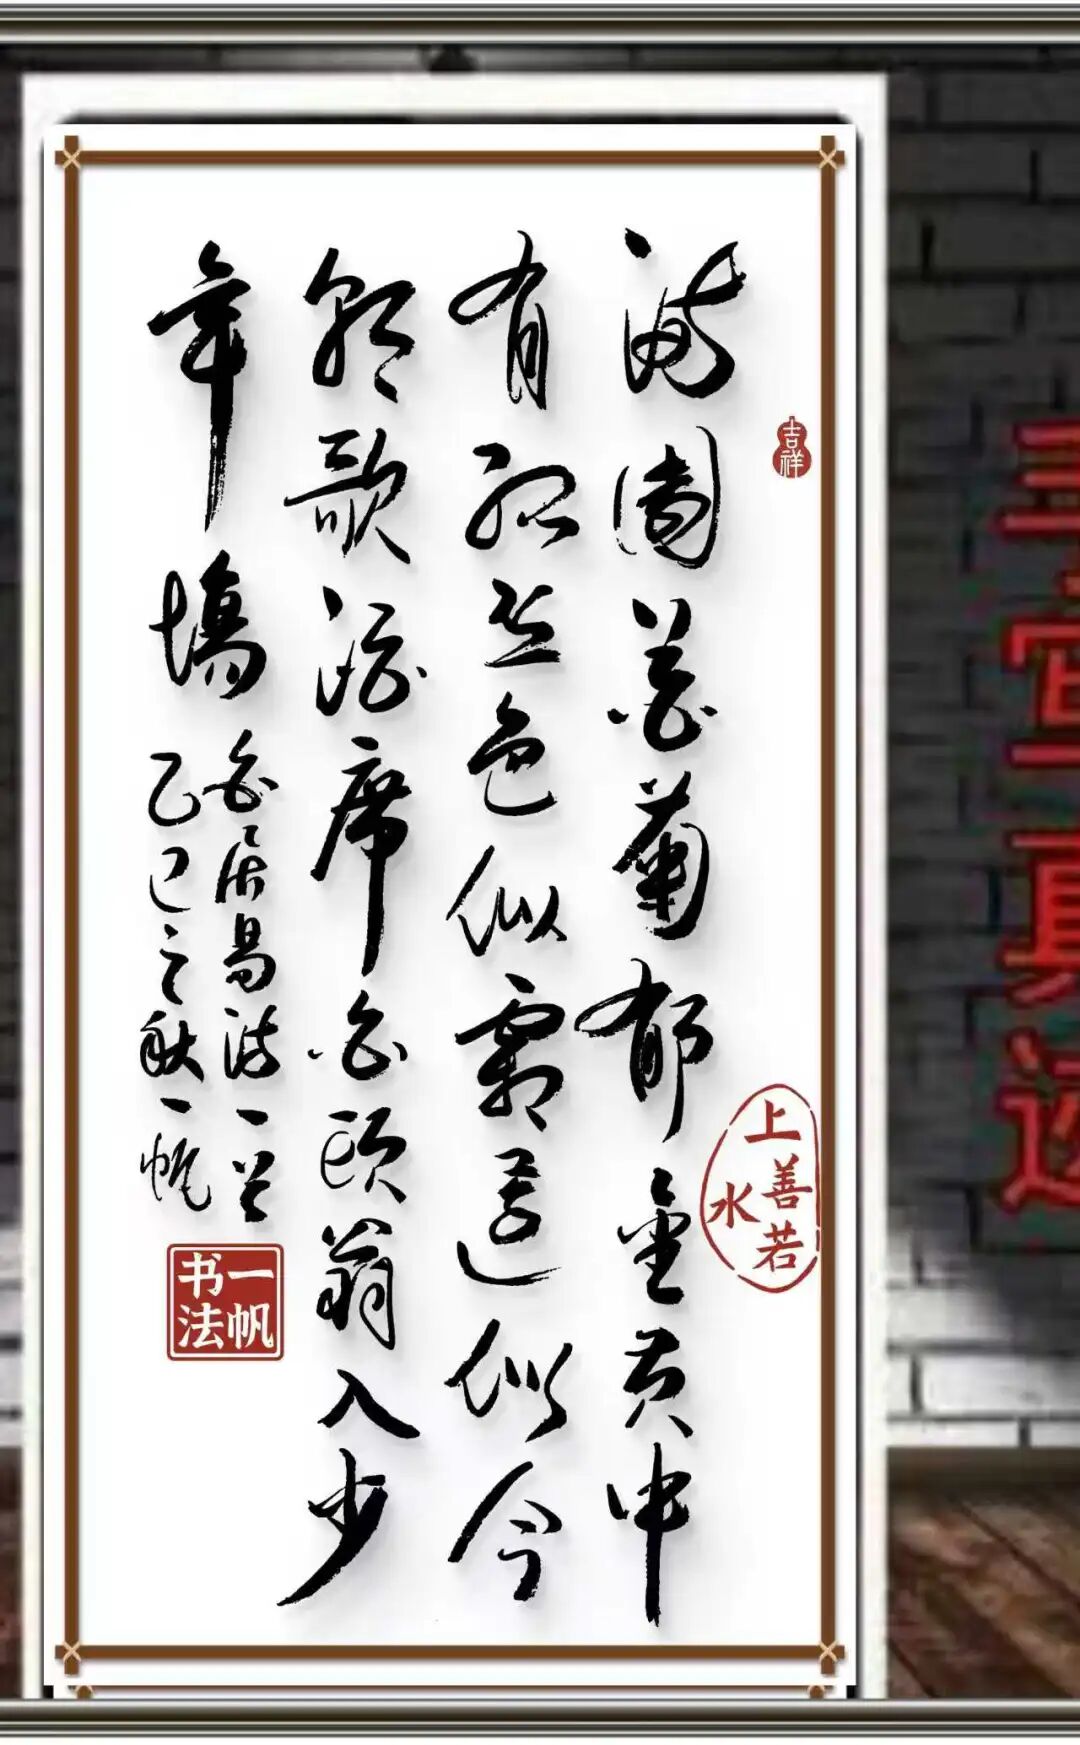 吉祥
满園花菊郁金黄中
有孤丛色似霜還似今
朝歌酒席白頭翁入少
年場
白居易诗一首
乙巳之秋一帆
一帆书法
上善若水